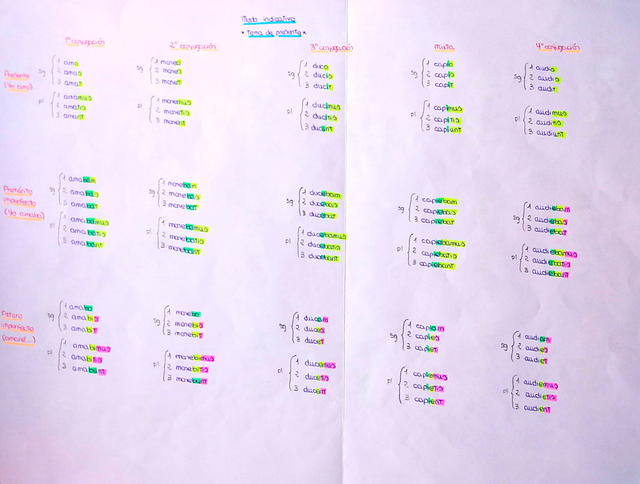 Modo indicativo
* Tema de presente *
1ª conjugación
2ª conjugación
3ª conjugación
mixta
4ª conjugación
Presente
(Yo amo)
sg
1 amo
2 amas
3 amat
pl
1 amamus
2 amatis
3 amant
sg
1 moneo
2 mones
3 monet
pl
1 monemus
2 monetis
3 monent
sg
1 duco
2 ducis
3 ducit
pl
1 ducimus
2 ducitis
3 ducunt
sg
1 capio
2 capis
3 capit
pl
1 capimus
2 capitis
3 capiunt
sg
1 audio
2 audis
3 audit
pl
1 audimus
2 auditis
3 audiunt
Pretérito
imperfecto
(Yo amaba)
sg
1 amabam
2 amabas
3 amabat
pl
1 amabamus
2 amabatis
3 amabant
sg
1 monebam
2 monebas
3 monebat
pl
1 monebamus
2 monebatis
3 monebant
sg
1 ducebam
2 ducebas
3 ducebat
pl
1 ducebamus
2 ducebatis
3 ducebant
sg
1 capiebam
2 capiebas
3 capiebat
pl
1 capiebamus
2 capiebatis
3 capiebant
sg
1 audiebam
2 audiebas
3 audiebat
pl
1 audiebamus
2 audiebatis
3 audiebant
Futuro
imperfecto
(amaré...)
sg
1 amabo
2 amabis
3 amabit
pl
1 amabimus
2 amabitis
3 amabunt
sg
1 monebo
2 monebis
3 monebit
pl
1 monebimus
2 monebitis
3 monebunt
sg
1 ducam
2 duces
3 ducet
pl
1 ducemus
2 ducetis
3 ducent
sg
1 capiam
2 capies
3 capiet
pl
1 capiemus
2 capietis
3 capient
sg
1 audiam
2 audies
3 audiet
pl
1 audiemus
2 audietis
3 audient